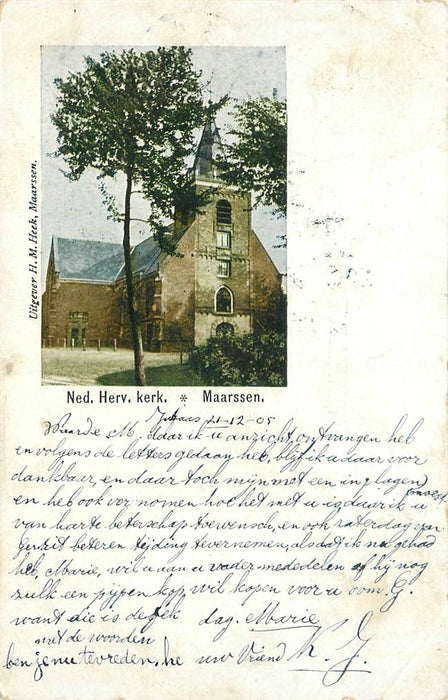 Uitgever H. M. Heek, Maarssen.
Ned. Herv. kerk. * Maarssen.
21-12-05
Waarde M. daar ik u anzicht ontvangen heb
en volgens de letters gedaan heb, blijf ik u daar voor
dankbaar, en daar toch mijn met een in
en heb ook ver nomen hoe het met u is daar ik u
van harte beterschap toewensch, en ook zaterdag van
beteren tijding te vernemen, als dat ik nu gehad
heb, Marie, wil u aan u vader mededelen of hij nog
zulk een pijpen kop wil kopen voor u oom G.
want die is defek dag. Marie
met de woorden
ben je nu tevreden. he uw Vriend K. G.